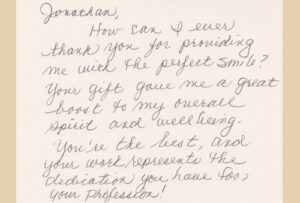 Jonathan,
How can I ever
thank you for providing
me with the perfect smile?
Your gift gave me a great
boost to my overall
spirit and well being.
You're the best, and
your work represents the
dedication you have too,
your profession!